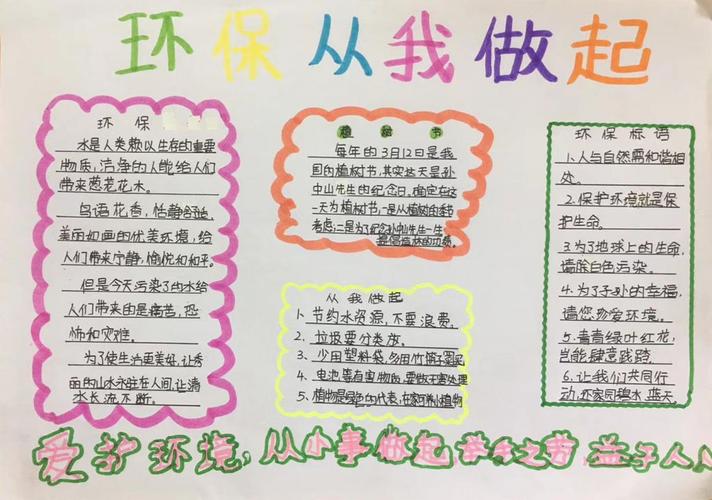 环保从我做起
环保
水是人类赖以生存的重要
物质,洁净的人能给人们
带来葱茏花木。
鸟语花香,恬静舒驰,
美丽如画的优美环境,给
人们带来宁静,愉悦和和平。
但是今天污染了的水给
人们带来的是痛苦,恐
怖和灾难。
为了使生活更美好,让秀
丽的山水永驻在人间,让清
水长流不断。
植树节
每年的3月12日是我
国内植树节,其实这天是孙
中山先生的纪念日。确定在这
一天为植树节,一是从植树的季节
考虑;二是为了纪念孙中山先生一生
提倡造林的功绩。
从我做起
1、节约水资源,不要浪费。
2、垃圾要分类放。
3、少用塑料袋,多用竹篮子
4、电池等有害物质,要做无害处理
5、植物是绿色的代表,在家种小植物
环保标语
1.人与自然需和谐相
处。
2.保护环境就是保
护生命。
3.为了地球上的生命,
请除白色污染。
4.为了子孙的幸福,
请您珍爱环境。
5.青青绿叶红花,
岂能肆意践踏。
6.让我们共同行
动,还家园碧水蓝天。
爱护环境,从小事做起,举手之劳,益于人人